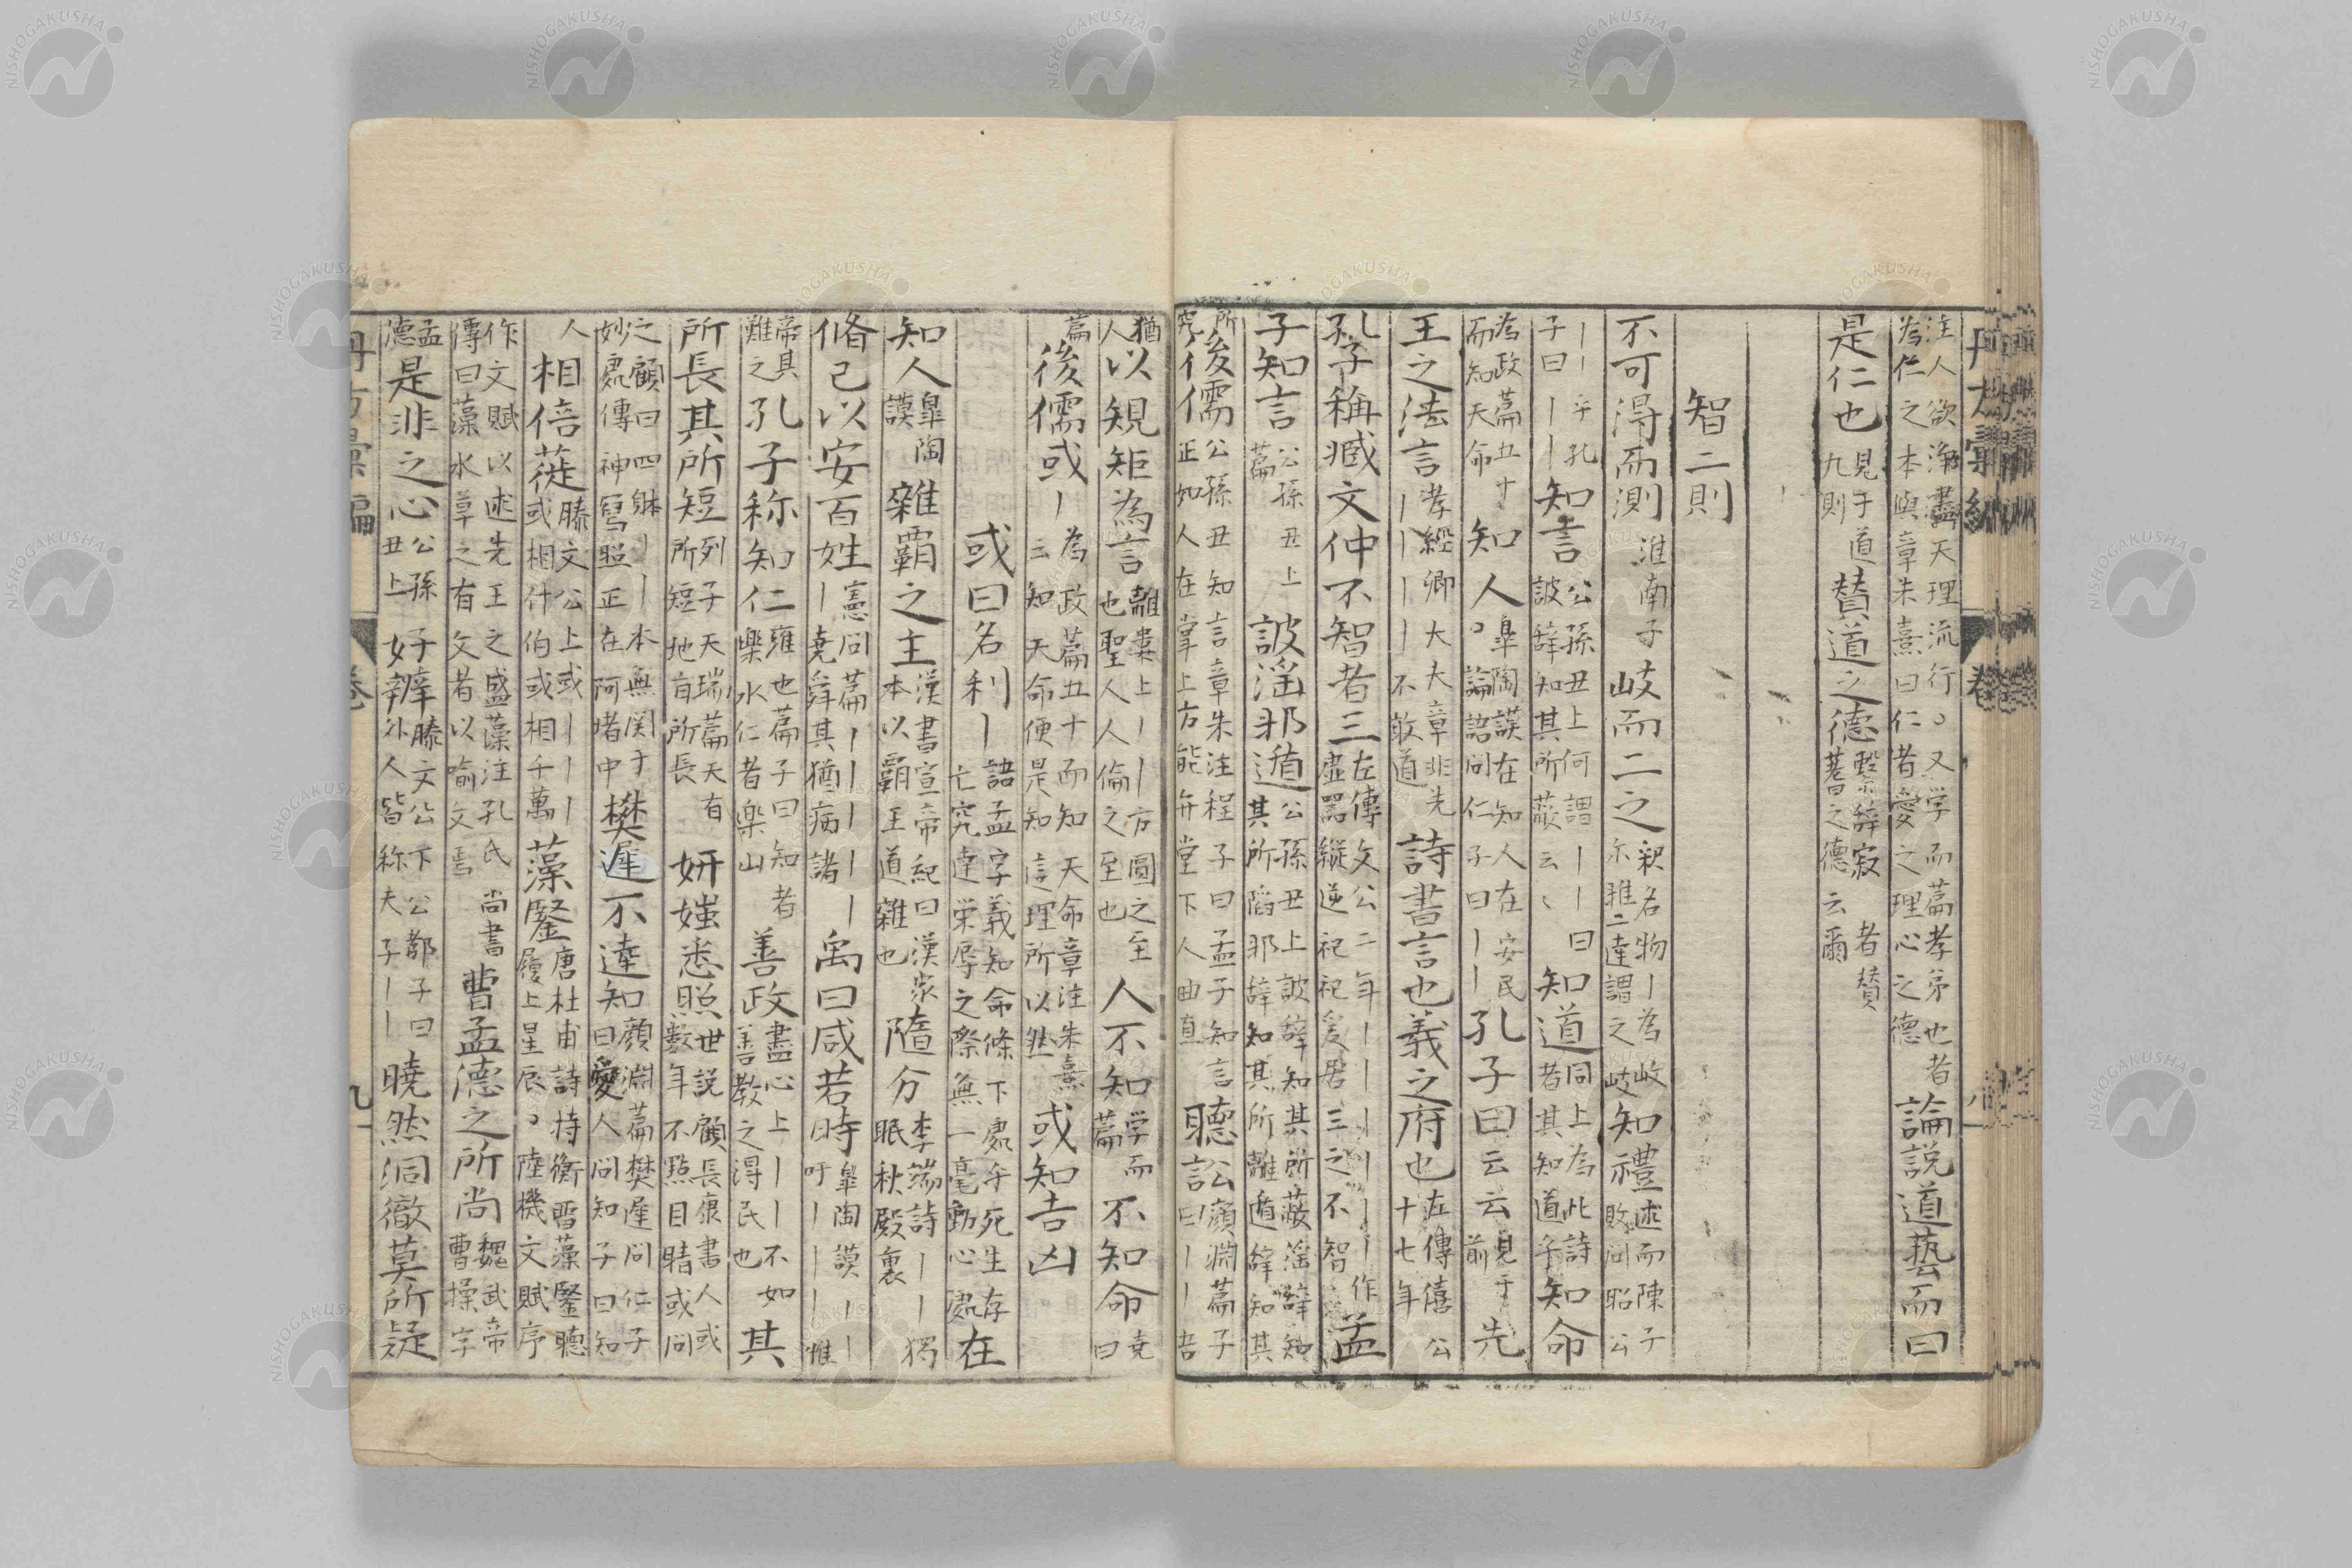 注人欲淨盡天理流行。又学而篇孝弟也者為仁之本與章朱熹曰仁者愛之理心之德論説道藝而曰
是仁也見于道九則賛道之德繋辞寂者賛蓍之德云爾
智二則
不可得而測淮南子岐而二之釈名物丨為岐尓雅二達謂之岐知禮述而陳子敗問昭公
丨丨乎孔子曰丨丨知言公孫丑上何謂丨丨曰詖辞知其所蔽云〻知道同上為此詩者其知道乎知命
為政篇五十而知天命知人皐陶謨在知人在安民。論語問仁子曰丨丨孔子曰云云見于前先
王之法言孝經卿大夫章非先丨丨丨丨不敢道詩書言也義之府也左傳僖公十七年
孔子稱臧文仲不智者三左傳文公二年丨丨丨丨丨丨作虚噐縦逆祀祀爰居三之不智孟
子知言公孫丑上篇詖滛邪遁公孫丑上詖辞知其所蔽滛辞知其所陥邪辞知其所離遁辞知其
所究後儒公孫丑知言章朱注程子曰孟子知言正如人在掌上方能弁堂下人曲直聴訟顔淵篇子曰丨丨吾
猶人以規矩為言離婁上丨丨方圓之至也聖人人倫之至也人不知学而篇不知命堯曰
篇後儒或丨為政篇五十而知天命章注朱熹云知天命便是知這理所以然或知吉凶
或曰名利丨語孟字義知命條下處于死生存亡究達栄辱之際無一毫動心處在
知人皐陶謨雜覇之主漢書宣帝紀曰漢家本以覇王道雜也隨分李端詩丨丨獨眠秋殿裏
脩己以安百姓憲問篇丨丨丨丨丨丨堯舜其猶病諸禹曰咸若時皐陶謨丨丨吁丨丨丨丨惟
帝其難之孔子称知仁雍也篇子曰知者樂水仁者楽山善政盡心上丨丨不如善教之得民也其
所長其所短列子天瑞篇天有所短地有所長妍媸悉照世説顧長康書人或數年不點目睛或問
之顧曰四躰丨丨本無関于妙處傳神寫照正在阿堵中樊遲不達知顔淵篇樊遅問仁子曰愛人問知子曰知
人相倍蓰滕文公上或丨丨丨或相什伯或相千萬藻鑒唐杜甫詩持衡畱藻鑒聴履上星辰。陸機文賦序
作文賦以述先王之盛藻注孔氏傳曰藻水草之有文者以喩文焉尚書曹孟德之所尚魏武帝曹操字
孟德是非之心公孫丑上好辨滕文公下公都子曰外人皆称夫子丨丨曉然洞徹莫所疑